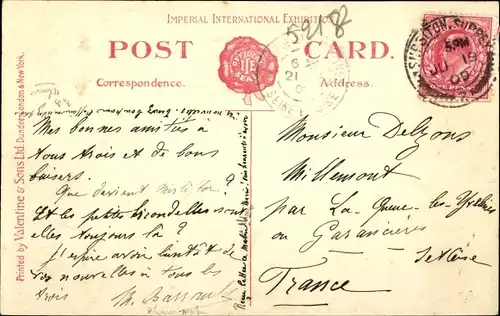 IMPERIAL INTERNATIONAL EXHIBITION
52182
POST CARD.
OFFICIAL
Correspondence.
Address.
Printed by Valentine & Sons Ltd. Dundee, London & New York.
5 PM
JU 19
09
21
Mes bonnes amitiés à
vous trois et de bons
baisers.
Que devient
?
Et les petites hirondelles sont
elles toujours là ?
J'espère avoir bientôt de
vos nouvelles à tous les
trois
M.
Monsieur Delzons
Millemont
par La-Queue-les-Yvelines
ou Garancières
Set Oise
France